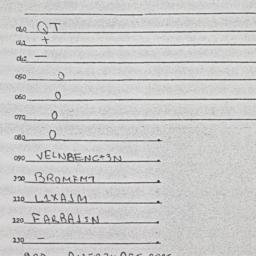 010 QT
011 +
012 —
050 0
060 0
070 0
080 0
090 VELNBENC+3N
190 BROMEMT
110 L1XA1M
120 FARBA1IN
130 —